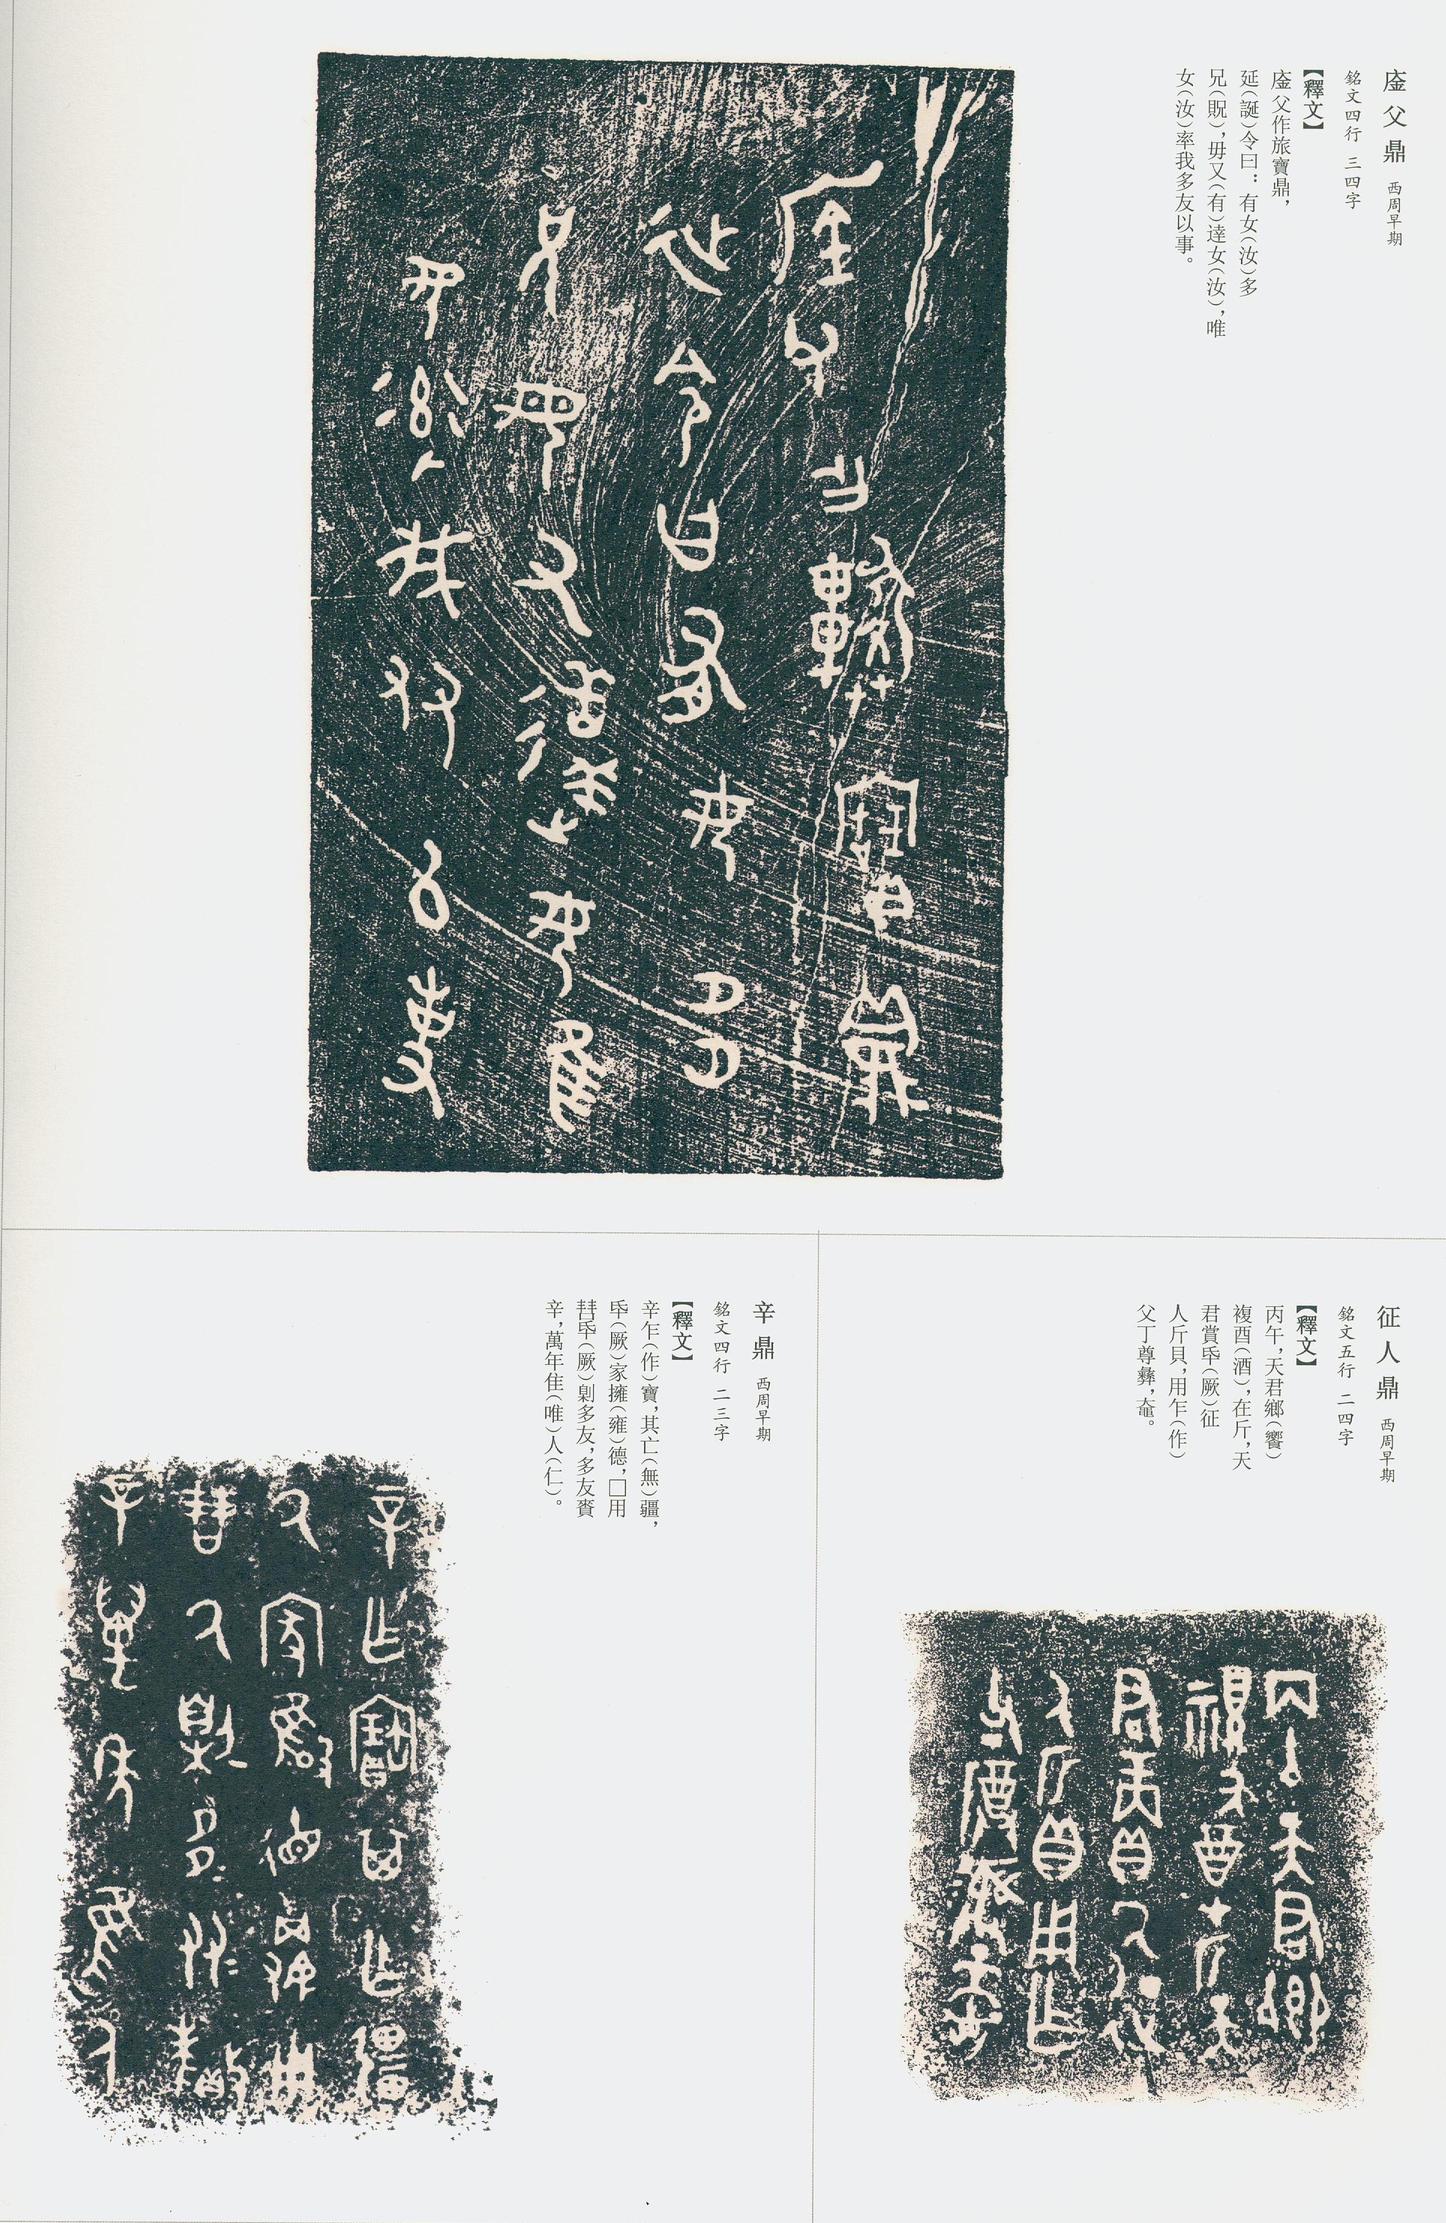 㢑父鼎 西周早期
銘文四行 三四字
【釋文】
㢑父作旅寶鼎，
延（誕）令曰：有女（汝）多
兄（貺），毋又（有）達女（汝），唯
女（汝）率我多友以事。
征人鼎 西周早期
銘文五行 二四字
【釋文】
丙午，天君鄉（饗）
複酉（酒），在斤，天
君賞氒（厥）征
人斤貝，用乍（作）
父丁尊彝，
辛鼎 西周早期
銘文四行 二三字
【釋文】
辛乍（作）寶，其亡（無）疆，
氒（厥）家擁（雍）德，□用
氒（厥）剝多友，多友賚
辛，萬年隹（唯）人（仁）。